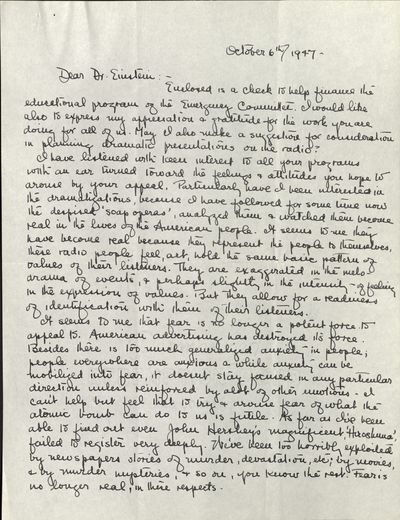 October 6th/1947-
Dear Dr. Einstein:-
Enclosed is a check to help finance the
educational program of the Emergency Committee. I would like
also to express my appreciation & gratitude for the work you are
doing for all of us. May I also make a suggestion for consideration
in planning dramatic presentations on the radio?
I have listened with keen interest to all your programs
with an ear turned toward the feelings & attitudes you hope to
arouse by your appeal. Particularly have I been interested in
the dramatizations, because I have followed for some time now
the despised 'soap operas', analyzed them & watched them become
real in the lives of the American people. It seems to me they
have become real because they represent the people to themselves,
these radio people feel, act, hold the same basic pattern of
values of their listeners. They are exaggerated in the melo-
drama of events, & perhaps slightly in the intensity of feeling
in the expression of values. But they allow for a readiness
of identification with them of their listeners.
It seems to me that fear is no longer a potent force to
appeal to. American advertising has destroyed its force.
Besides there is too much generalized anxiety in people;
people everywhere are anxious & while anxiety can be
mobilized into fear, it doesn't stay focused in any particular
direction unless reinforced by alot of other emotions. I
can't help but feel that to try to arouse fear of what the
atomic bomb can do to us is futile. As far as I've been
able to find out even John Hershey's magnificent, 'Hiroshima',
failed to register very deeply. We've been too horribly exploited
by newspapers stories of murder, devastation, etc; by movies,
& by murder mysteries, & so on, you know the rest. Fear is
no longer real, in these respects.